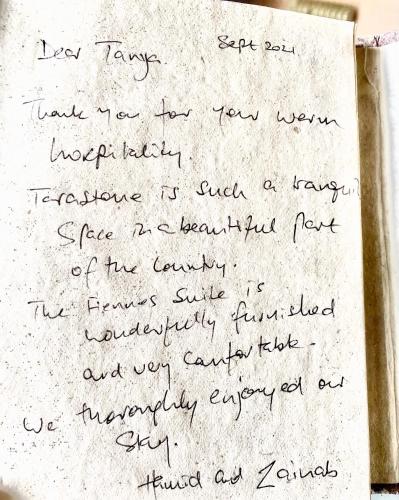 Dear Tanya Sept 2021
Thank you for your warm
hospitality.
Tarastone is such a tranquil
Space in a beautiful part
of the country.
The Fiennes Suite is
wonderfully furnished
and very comfortable.
We thoroughly enjoyed our
Stay.
Hamid and Zainab